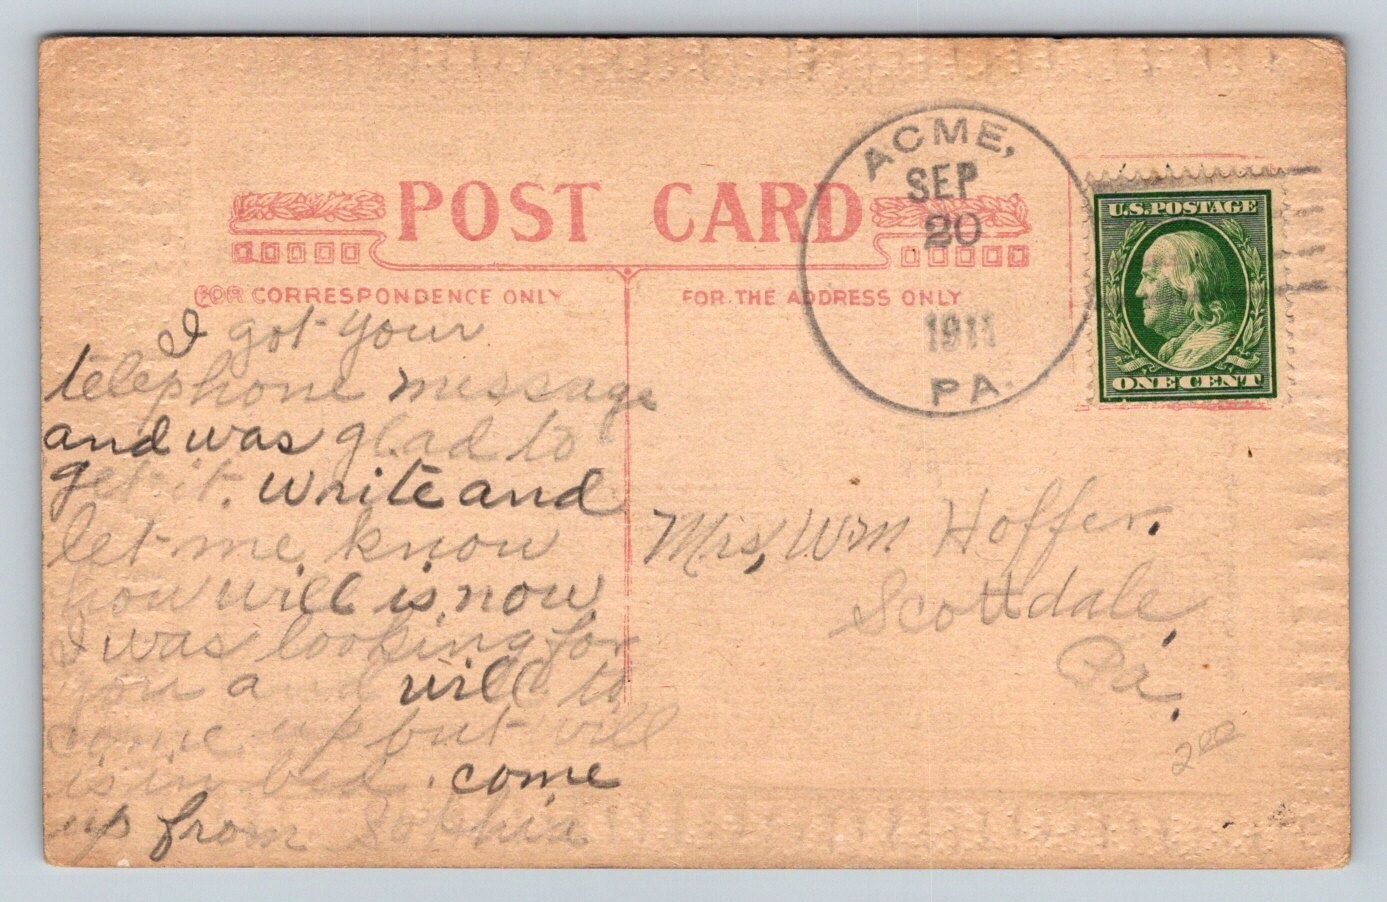 POST CARD
FOR CORRESPONDENCE ONLY
FOR THE ADDRESS ONLY
ACME,
SEP
20
1911
PA.
U.S. POSTAGE
ONE CENT
I got your
telephone message
and was glad to
get it. Write and
let me know
how will is now
I was looking for
you and will to
come up but will
is in bed. come
up from Sophia
Mrs, Wm Hoffer.
Scottdale,
Pa.
200